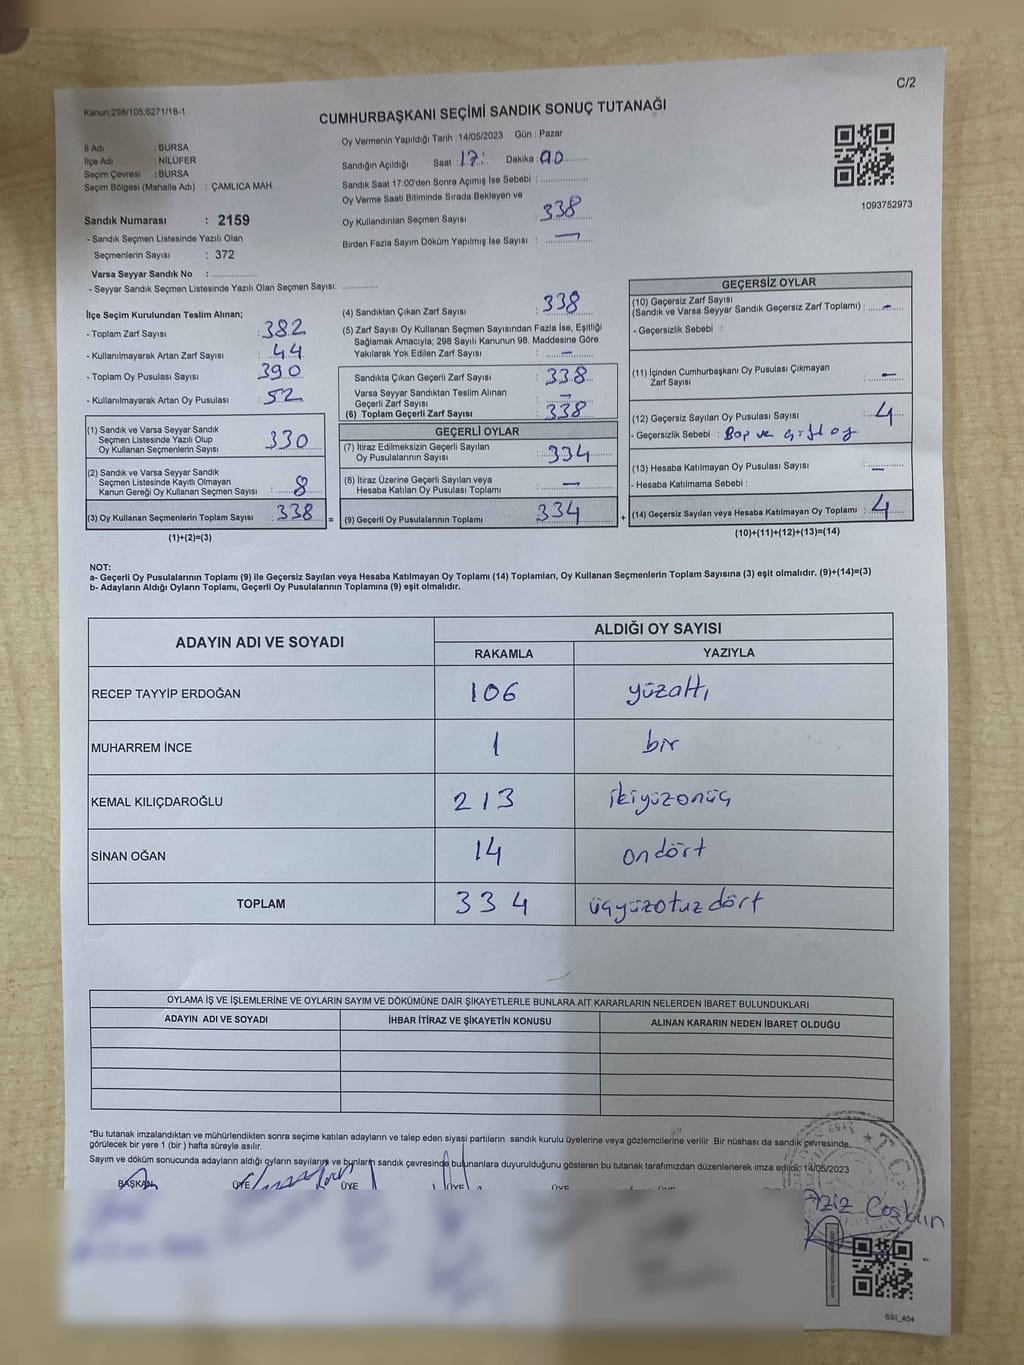 C/2
Kanun;298/105;6271/18-1
CUMHURBAŞKANI SEÇİMİ SANDIK SONUÇ TUTANAĞI
İl Adı : BURSA
İlçe Adı : NİLÜFER
Seçim Çevresi : BURSA
Seçim Bölgesi (Mahalle Adı) : ÇAMLICA MAH.
Sandık Numarası : 2159
- Sandık Seçmen Listesinde Yazılı Olan
Seçmenlerin Sayısı : 372
Varsa Seyyar Sandık No :
- Seyyar Sandık Seçmen Listesinde Yazılı Olan Seçmen Sayısı:
Oy Vermenin Yapıldığı Tarih : 14/05/2023 Gün : Pazar
Sandığın Açıldığı Saat : 17: Dakika :
Sandık Saat 17:00'den Sonra Açımış İse Sebebi :
Oy Verme Saati Bitiminde Sırada Bekleyen ve
Oy Kullandırılan Seçmen Sayısı : 338
Birden Fazla Sayım Döküm Yapılmış İse Sayısı : —
1093752973
İlçe Seçim Kurulundan Teslim Alınan;
- Toplam Zarf Sayısı : 382
- Kullanılmayarak Artan Zarf Sayısı : 44
- Toplam Oy Pusulası Sayısı : 390
- Kullanılmayarak Artan Oy Pusulası : 52
(1) Sandık ve Varsa Seyyar Sandık
Seçmen Listesinde Yazılı Olup
Oy Kullanan Seçmenlerin Sayısı : 330
(2) Sandık ve Varsa Seyyar Sandık
Seçmen Listesinde Kayıtlı Olmayan
Kanun Gereği Oy Kullanan Seçmen Sayısı : 8
(3) Oy Kullanan Seçmenlerin Toplam Sayısı : 338 =
(1)+(2)=(3)
(4) Sandıktan Çıkan Zarf Sayısı : 338
(5) Zarf Sayısı Oy Kullanan Seçmen Sayısından Fazla İse, Eşitliği
Sağlamak Amacıyla; 298 Sayılı Kanunun 98. Maddesine Göre
Yakılarak Yok Edilen Zarf Sayısı : —
Sandıkta Çıkan Geçerli Zarf Sayısı : 338
Varsa Seyyar Sandıktan Teslim Alınan
Geçerli Zarf Sayısı : —
(6) Toplam Geçerli Zarf Sayısı : 338
GEÇERLİ OYLAR
(7) İtiraz Edilmeksizin Geçerli Sayılan
Oy Pusulalarının Sayısı : 334
(8) İtiraz Üzerine Geçerli Sayılan veya
Hesaba Katılan Oy Pusulası Toplamı : —
(9) Geçerli Oy Pusulalarının Toplamı : 334 +
GEÇERSİZ OYLAR
(10) Geçersiz Zarf Sayısı
(Sandık ve Varsa Seyyar Sandık Geçersiz Zarf Toplamı) : —
- Geçersizlik Sebebi :
(11) İçinden Cumhurbaşkanı Oy Pusulası Çıkmayan
Zarf Sayısı : —
(12) Geçersiz Sayılan Oy Pusulası Sayısı : 4
- Geçersizlik Sebebi : ve çift oy
(13) Hesaba Katılmayan Oy Pusulası Sayısı : —
- Hesaba Katılmama Sebebi :
(14) Geçersiz Sayılan veya Hesaba Katılmayan Oy Toplamı : 4
(10)+(11)+(12)+(13)=(14)
NOT:
a- Geçerli Oy Pusulalarının Toplamı (9) ile Geçersiz Sayılan veya Hesaba Katılmayan Oy Toplamı (14) Toplamları, Oy Kullanan Seçmenlerin Toplam Sayısına (3) eşit olmalıdır. (9)+(14)=(3)
b- Adayların Aldığı Oyların Toplamı, Geçerli Oy Pusulalarının Toplamına (9) eşit olmalıdır.
ADAYIN ADI VE SOYADI
ALDIĞI OY SAYISI
RAKAMLA YAZIYLA
RECEP TAYYİP ERDOĞAN 106 yüzaltı
MUHARREM İNCE 1 bir
KEMAL KILIÇDAROĞLU 213 ikiyüzonüç
SİNAN OĞAN 14 ondört
TOPLAM 334 üçyüzotuzdört
OYLAMA İŞ VE İŞLEMLERİNE VE OYLARIN SAYIM VE DÖKÜMÜNE DAİR ŞİKAYETLERLE BUNLARA AİT KARARLARIN NELERDEN İBARET BULUNDUKLARI
ADAYIN ADI VE SOYADI İHBAR İTİRAZ VE ŞİKAYETİN KONUSU ALINAN KARARIN NEDEN İBARET OLDUĞU
*Bu tutanak imzalandıktan ve mühürlendikten sonra seçime katılan adayların ve talep eden siyasi partilerin sandık kurulu üyelerine veya gözlemcilerine verilir. Bir nüshası da sandık çevresinde
görülecek bir yere 1 (bir ) hafta süreyle asılır.
Sayım ve döküm sonucunda adayların aldığı oyların sayılarını ve bunların sandık çevresinde bulunanlara duyurulduğunu gösteren bu tutanak tarafımızdan düzenlenerek imza edildi. 14/05/2023
BAŞKAN ÜYE ÜYE ÜYE ÜYE
T.C.
Aziz Coşkun
SSI_404